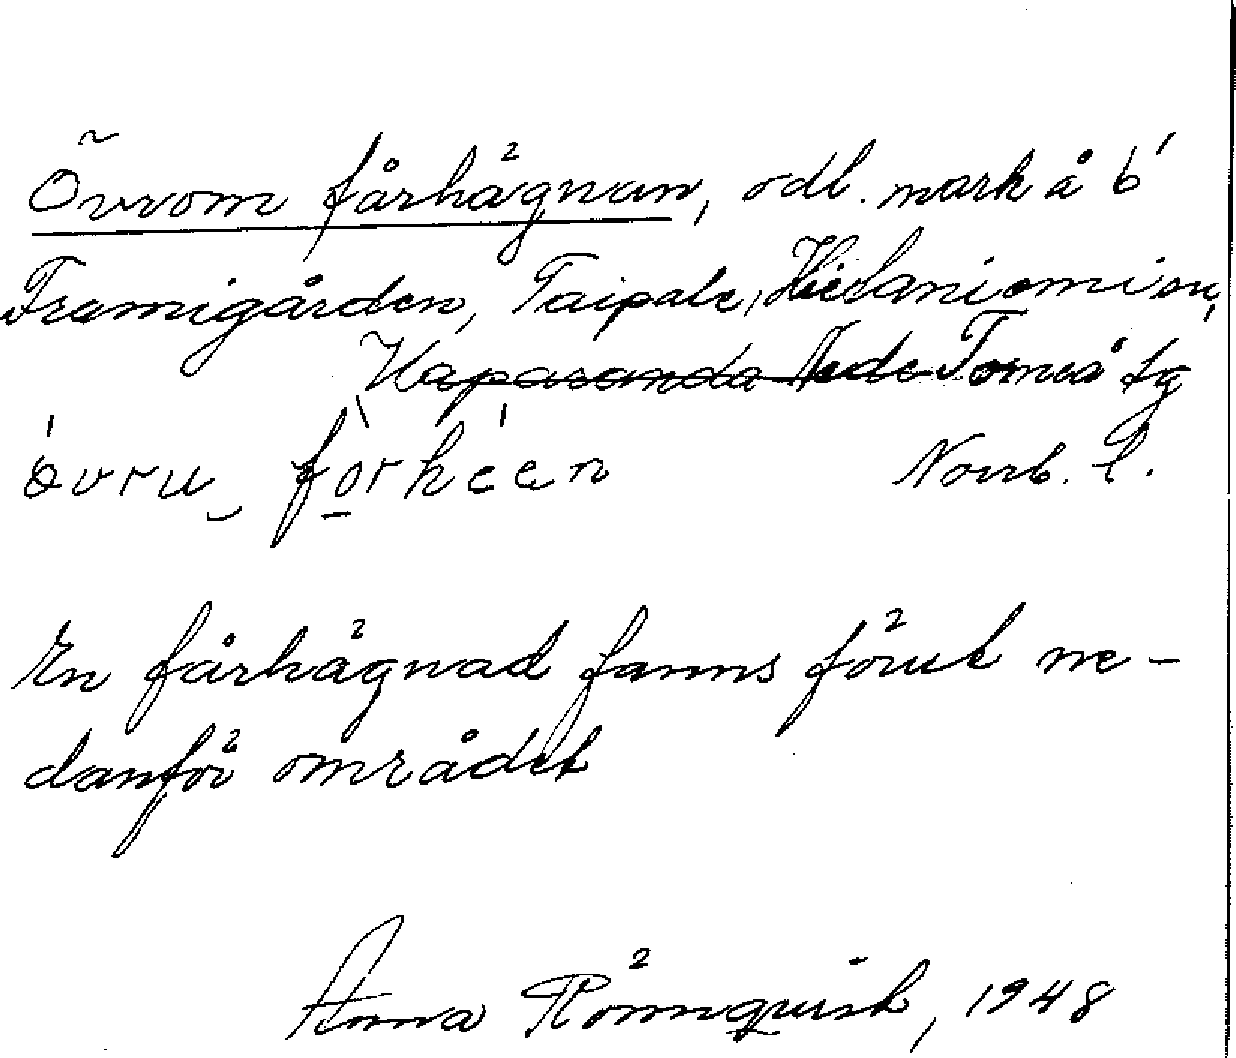 Övrom fårhägnan, odl. mark å b
Framigården, Taipale, Hietaniemi sn,
Haparanda Neder Torneå tg
övru fo̱rhéen Norrb. l.
En fårhägnad fanns förut ne-
danför området
Anna Rönnquist, 1948